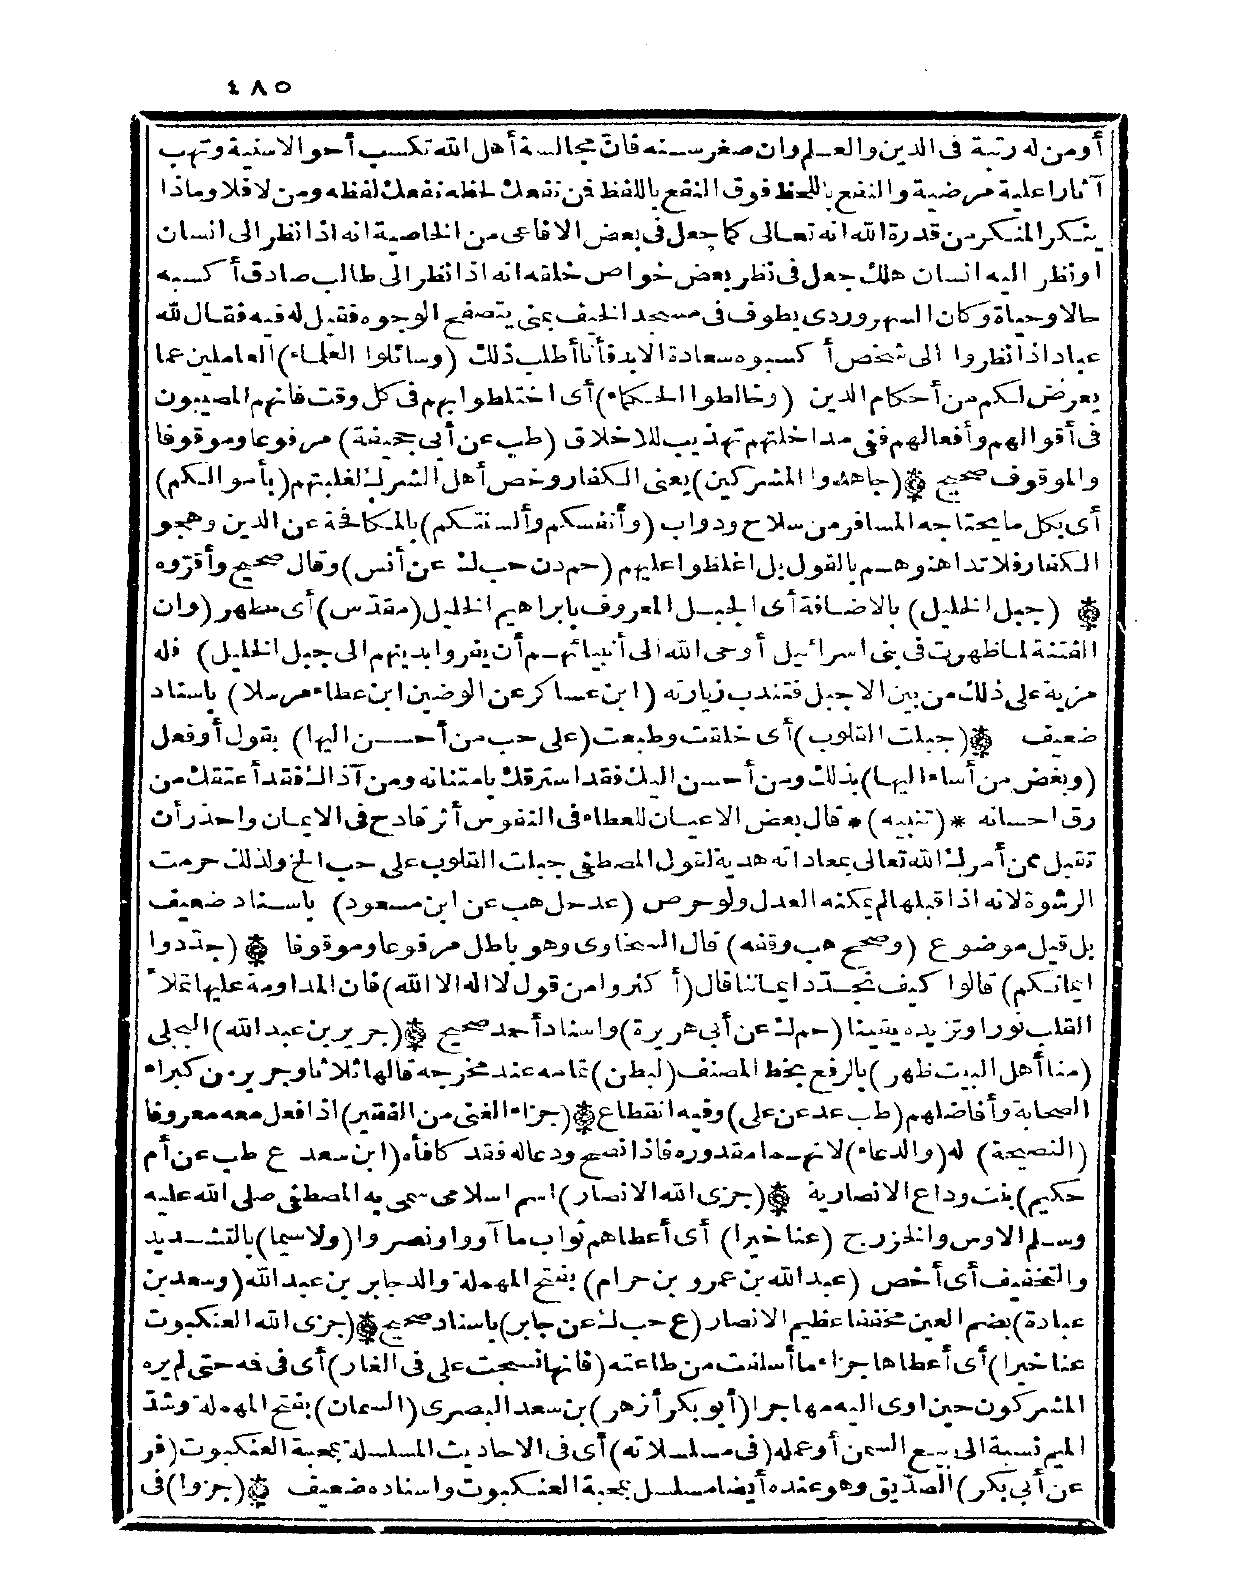 ٤٨٥
أو من له رتبة فى الدين والعلم وان صغر سنه فان مجالسة أهل الله تكسب أحوالا سنية وتهب
آثارا علية مرضية والنفع باللحظ فوق النفع باللفظ فمن نفعك لحظه نفعك لفظه ومن لا فلا وماذا
ينكر المنكر من قدرة الله انه تعالى كما جعل فى بعض الافاعى من الخاصية انه اذا نظر الى انسان
او نظر اليه انسان هلك جعل فى نظر بعض خواص خلقه انه اذا نظر الى طالب صادق أكسبه
حالا وحياة وكان السهروردى يطوف فى مسجد الخيف بمنى يتصفح الوجوه فقيل له فيه فقال لله
عباد اذا نظروا الى شخص أكسبوه سعادة الابد فأنا أطلب ذلك (وسائلوا العلماء) العاملين عما
يعرض لكم من أحكام الدين (وخالطوا الحكماء) أى اختلطوا بهم فى كل وقت فانهم المصيبون
فى أقوالهم وأفعالهم ففى مداخلتهم تهذيب للاخلاق (طب عن أبى جحيفة) مرفوعا وموقوفا
والموقوف صحيح ۞ (جاهدوا المشركين) يعنى الكفار وخص أهل الشرك لغلبتهم (بأموالكم)
أى بكل ما يحتاجه المسافر من سلاح ودواب (وأنفسكم وألسنتكم) بالمكافحة عن الدين وهجو
الكفار فلا تداهنوهم بالقول بل اغلظوا عليهم (حم د ن حب ك عن أنس) وقال صحيح وأقروه
۞ (جبل الخليل) بالاضافة أى الجبل المعروف بابراهيم الخليل (مقدس) أى مطهر (وان
الفتنة لما ظهرت فى بنى اسرائيل أوحى الله الى أنبيائهم أن يفروا بدينهم الى جبل الخليل) فله
مزية على ذلك من بين الاجبل فتندب زيارته (ابن عساكر عن الوضين ابن عطاء مرسلا) باسناد
ضعيف ۞ (جبلت القلوب) أى خلقت وطبعت (على حب من أحسن اليها) بقول أو فعل
(وبغض من أساء اليها) بذلك ومن أحسن اليك فقد استرقك بامتنانه ومن آذاك فقد أعتقك من
رق احسانه * (تنبيه) * قال بعض الاعيان للعطاء فى النفوس أثر قادح فى الايمان واحذر أن
تقبل ممن أمرك الله تعالى بمعاداته هدية لقول المصطفى جبلت القلوب على حب الخ ولذلك حرمت
الرشوة لانه اذا قبلها لم يمكنه العدل ولو حرص (عد حل هب عن ابن مسعود) باسناد ضعيف
بل قيل موضوع (وصحح هب وقفه) قال السخاوى وهو باطل مرفوعا وموقوفا ۞ (جددوا
ايمانكم) قالوا كيف نجدد ايماننا قال (أكثروا من قول لا اله الا الله) فان المداومة عليها تملأ
القلب نورا وتزيده يقينا (حم ك عن أبى هريرة) واسناد أحمد صحيح ۞ (جرير بن عبد الله) البجلى
(منا أهل البيت ظهر) بالرفع بخط المصنف (لبطن) تمامه عند مخرجه قالها ثلاثا وجرير من كبراء
الصحابة وأفاضلهم (طب عد عن على) وفيه انقطاع ۞ (جزاء الغنى من الفقير) اذا فعل معه معروفا
(النصيحة) له (والدعاء) لانهما مقدوره فاذا نصح ودعا له فقد كافأه (ابن سعد ع طب عن أم
حكيم) بنت وداع الانصارية ۞ (جزى الله الانصار) اسم اسلامى سمى به المصطفى صلى الله عليه
وسلم الاوس والخزرج (عنا خيرا) أى أعطاهم ثواب ما آووا ونصروا (ولاسيما) بالتشديد
والتخفيف أى أخص (عبد الله بن عمرو بن حرام) بفتح المهملة والد جابر بن عبد الله (وسعد بن
عبادة) بضم العين مخففا عظيم الانصار (ع حب ك عن جابر) باسناد صحيح ۞ (جزى الله العنكبوت
عنا خيرا) أى أعطاها جزاء ما أسلفت من طاعته (فانها نسجت على فى الغار) أى فى فمه حتى لم يره
المشركون حين اوى اليه مهاجرا (أبو بكر أزهر) بن سعد البصرى (السمان) بفتح المهملة وشد
الميم نسبة الى بيع السمن أو عمله (فى مسلسلاته) أى فى الاحاديث المسلسلة بمحبة العنكبوت (فر
عن أبى بكر) الصديق وهو عنده أيضا مسلسل بمحبة العنكبوت واسناده ضعيف ۞ (جزوا) فى